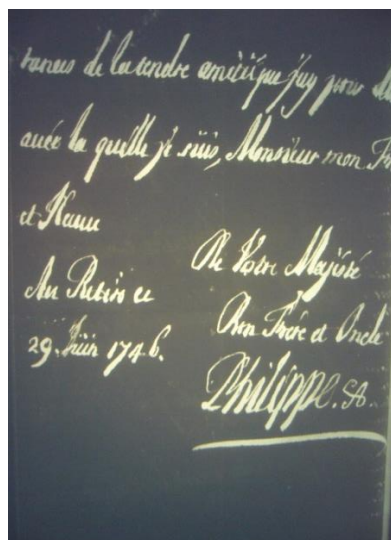 de la tendre amitié que j'ay pour
avec la quelle je suis, Monsieur mon
et Neveu
De Votre Majesté
Au Retiro ce
Bon Frere et Oncle
29. Juin 1746.
Philippe.